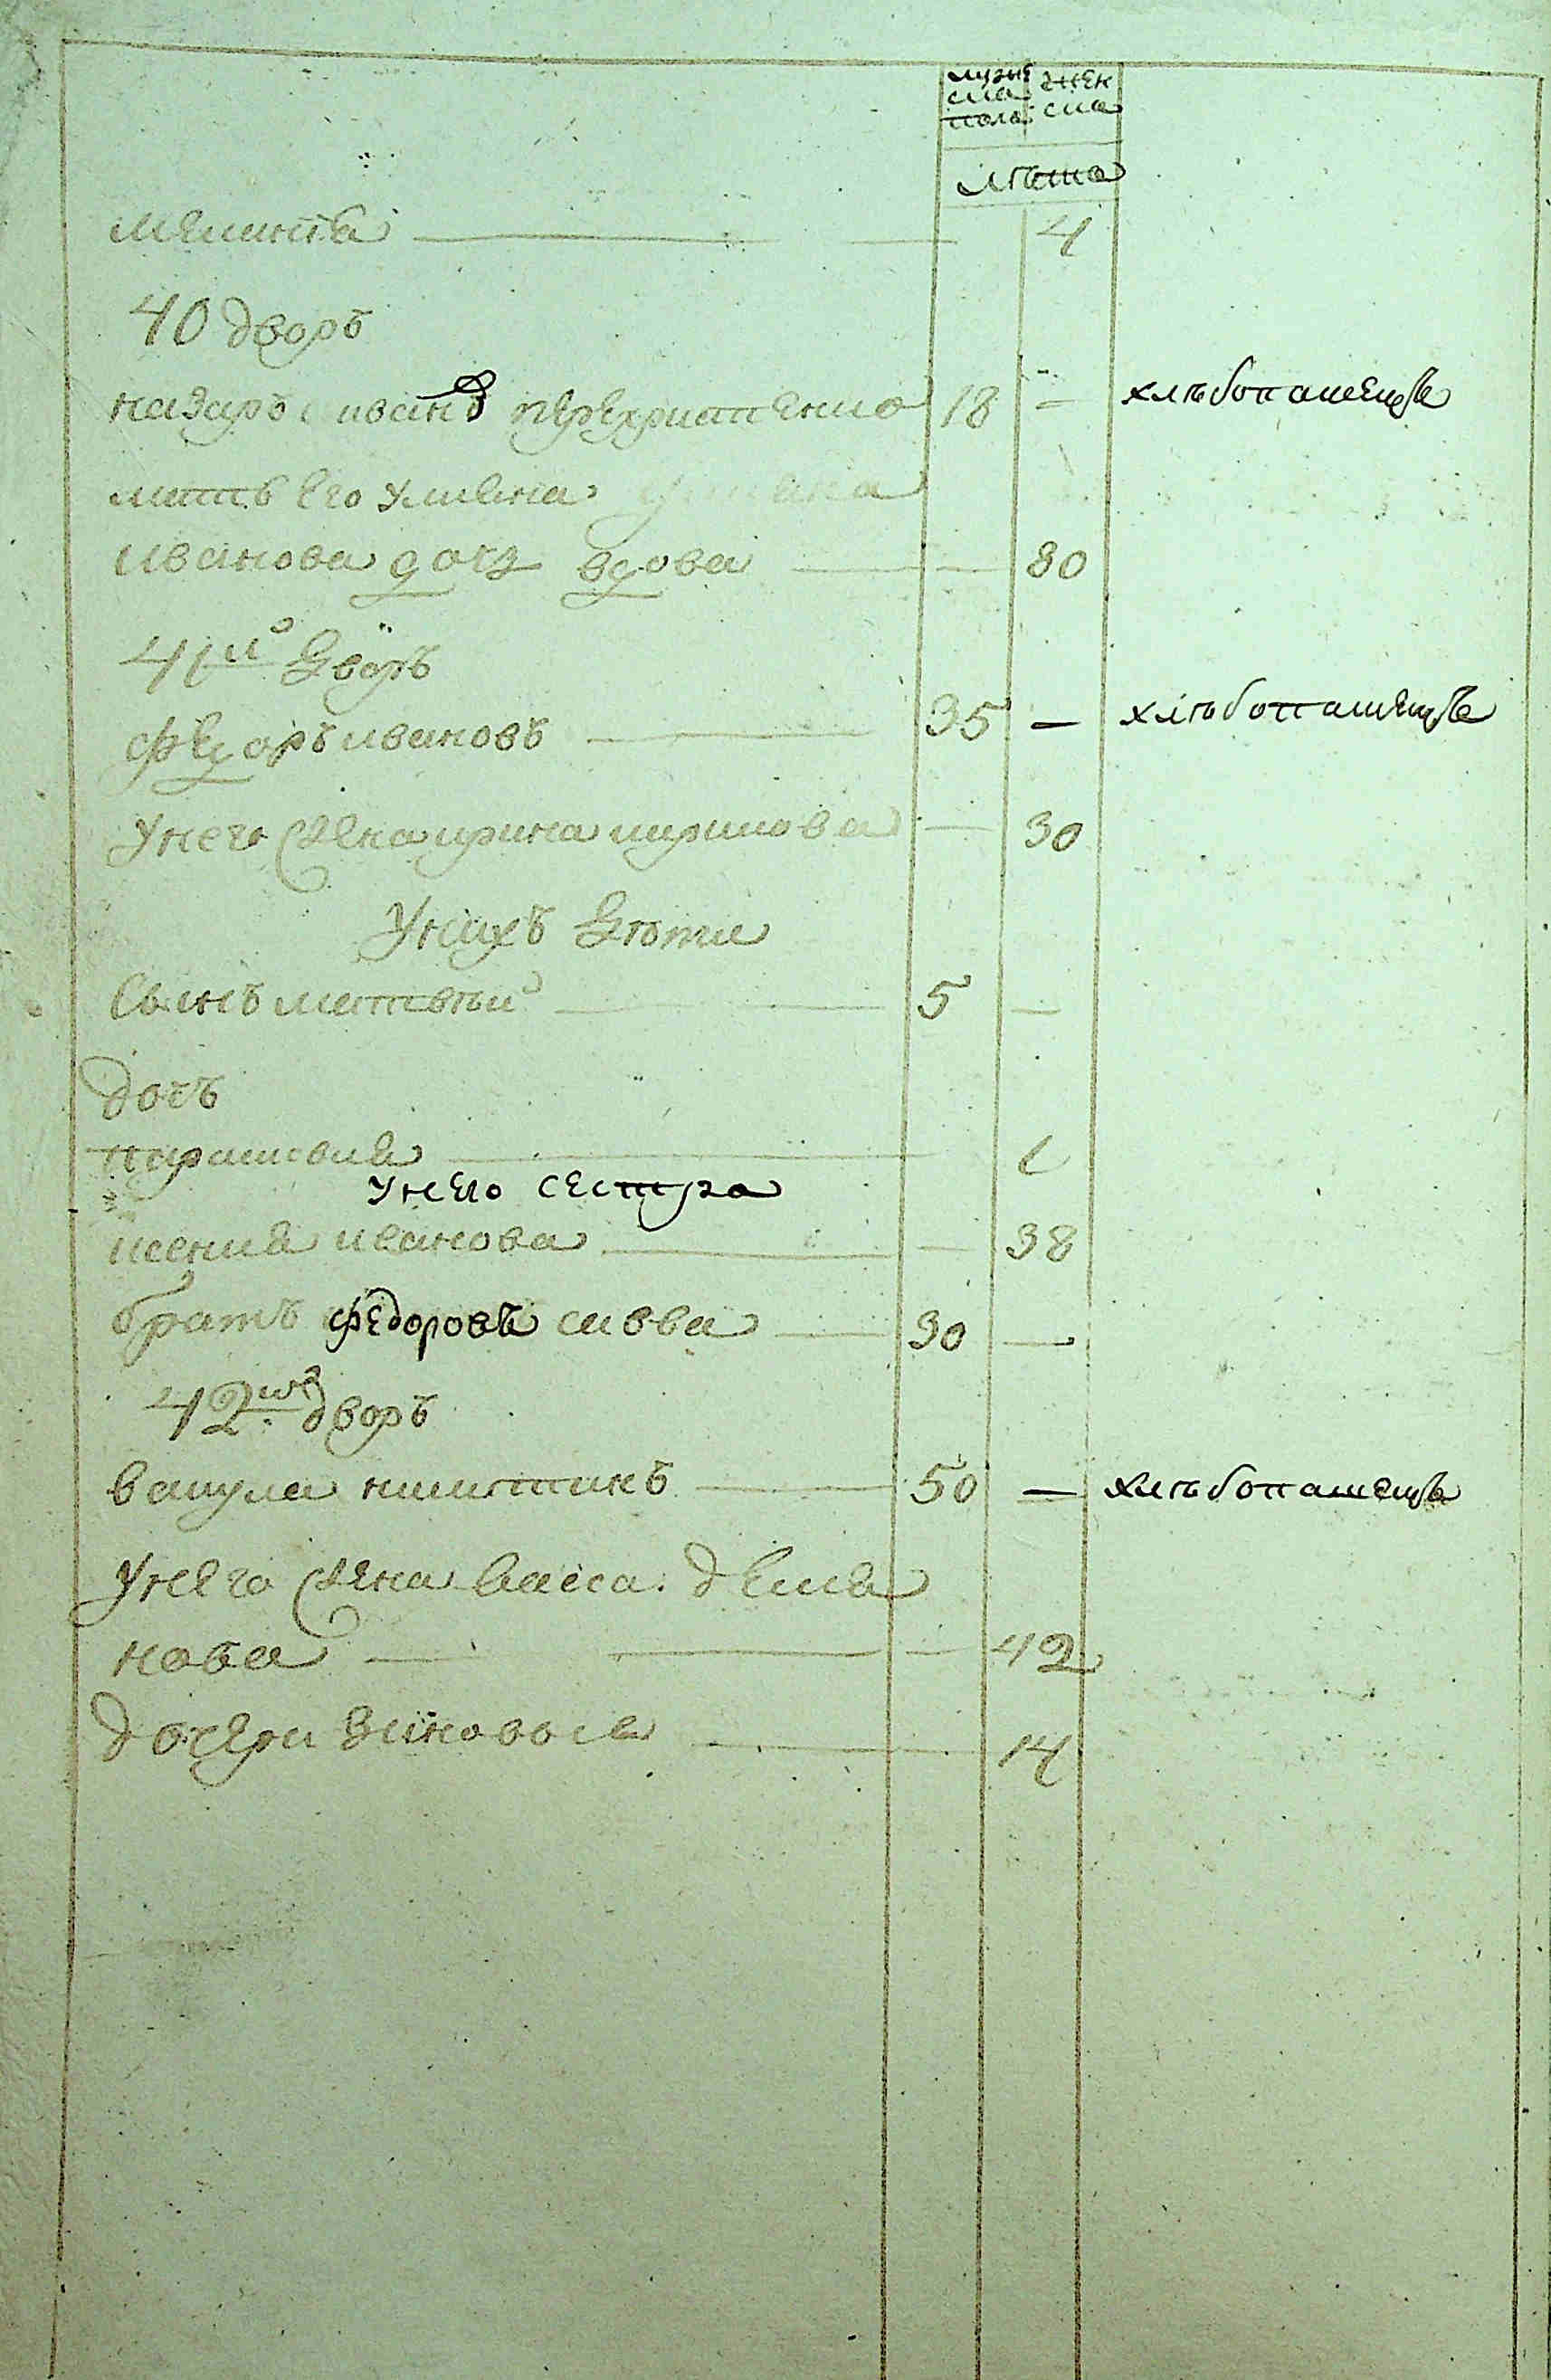 мужe жен
ска ска
пола
лѣта
меланія 4
40 дворъ
назаръ ивановъ перехристенко 18 — хлѣбопашецъ
мать его улияна
иванова дочь вдова — 80
41й дворъ
федоръ ивановъ 35 — хлѣбопашецъ
у него жена ирина кирилова — 30
у нихъ дѣти
сынъ матвѣй 5 —
дочъ
парасковия 1
у него сестра
ксения иванова — 38
братъ федоровъ савва 30 —
42й дворъ
вакула никитинъ 50 — хлѣбопашецъ
у него жена васса демя
нова — 42
дочери зиновия 14